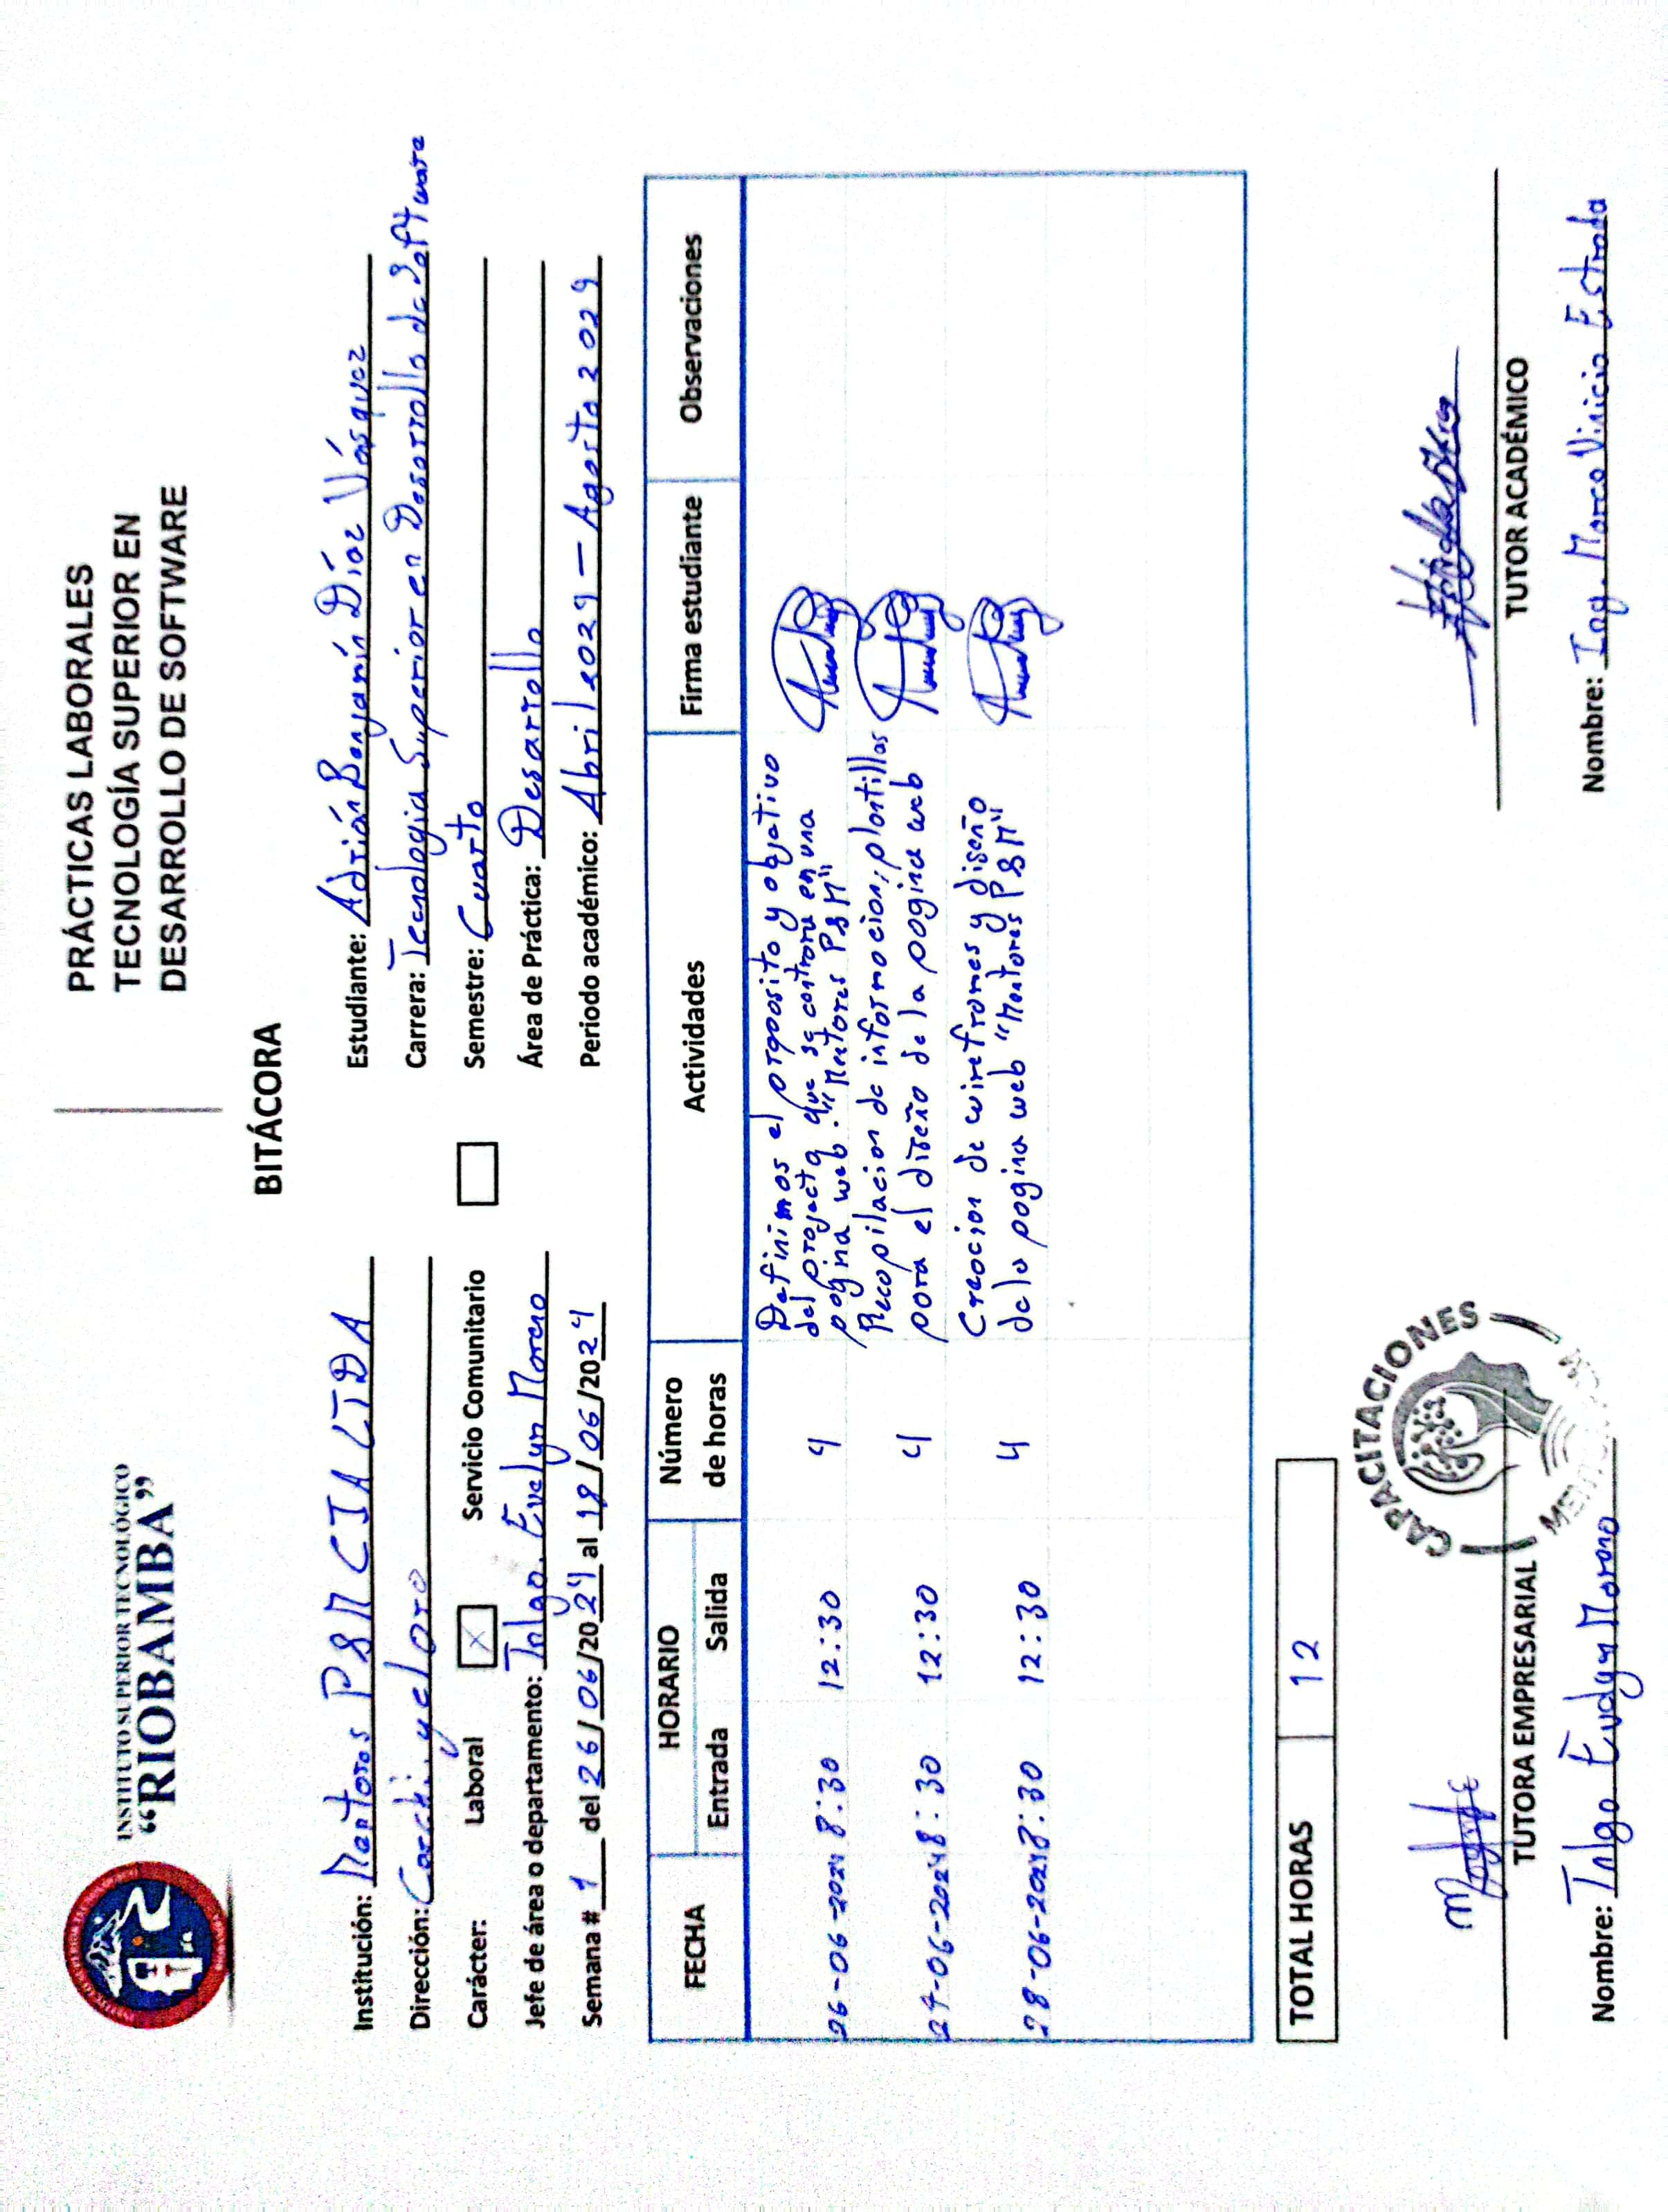 INSTITUTO SUPERIOR TECNOLÓGICO
“RIOBAMBA”
PRÁCTICAS LABORALES
TECNOLOGÍA SUPERIOR EN
DESARROLLO DE SOFTWARE
BITÁCORA
Institución: Mentores PSM CIA LTDA
Dirección: Carchi y el oro
Carácter: Laboral X Servicio Comunitario
Jefe de área o departamento: Tnlgo. Evelyn Moreno
Semana # 1 del 26/06/2024 al 18/06/2024
Estudiante: Adrián Benjamín Díaz Vásquez
Carrera: Tecnología Superior en Desarrollo de Software
Semestre: Cuarto
Área de Práctica: Desarrollo
Periodo académico: Abril 2024 - Agosto 2024
FECHA HORARIO Número de horas Actividades Firma estudiante Observaciones
Entrada Salida
26-06-2024 8:30 12:30 4 Definimos el proposito y objetivo
del proyecto que se centrara en una
pagina web. "Mentores PSM"
27-06-2024 8:30 12:30 4 Recopilacion de informacion, plantillas
para el diseño de la pagina web
28-06-2024 8:30 12:30 4 Creacion de wireframes y diseño
de la pagina web "Mentores PSM"
TOTAL HORAS 12
CAPACITACIONES
TUTORA EMPRESARIAL
Nombre: Tnlgo Evelyn Moreno
TUTOR ACADÉMICO
Nombre: Ing. Marco Vinicio Estrada